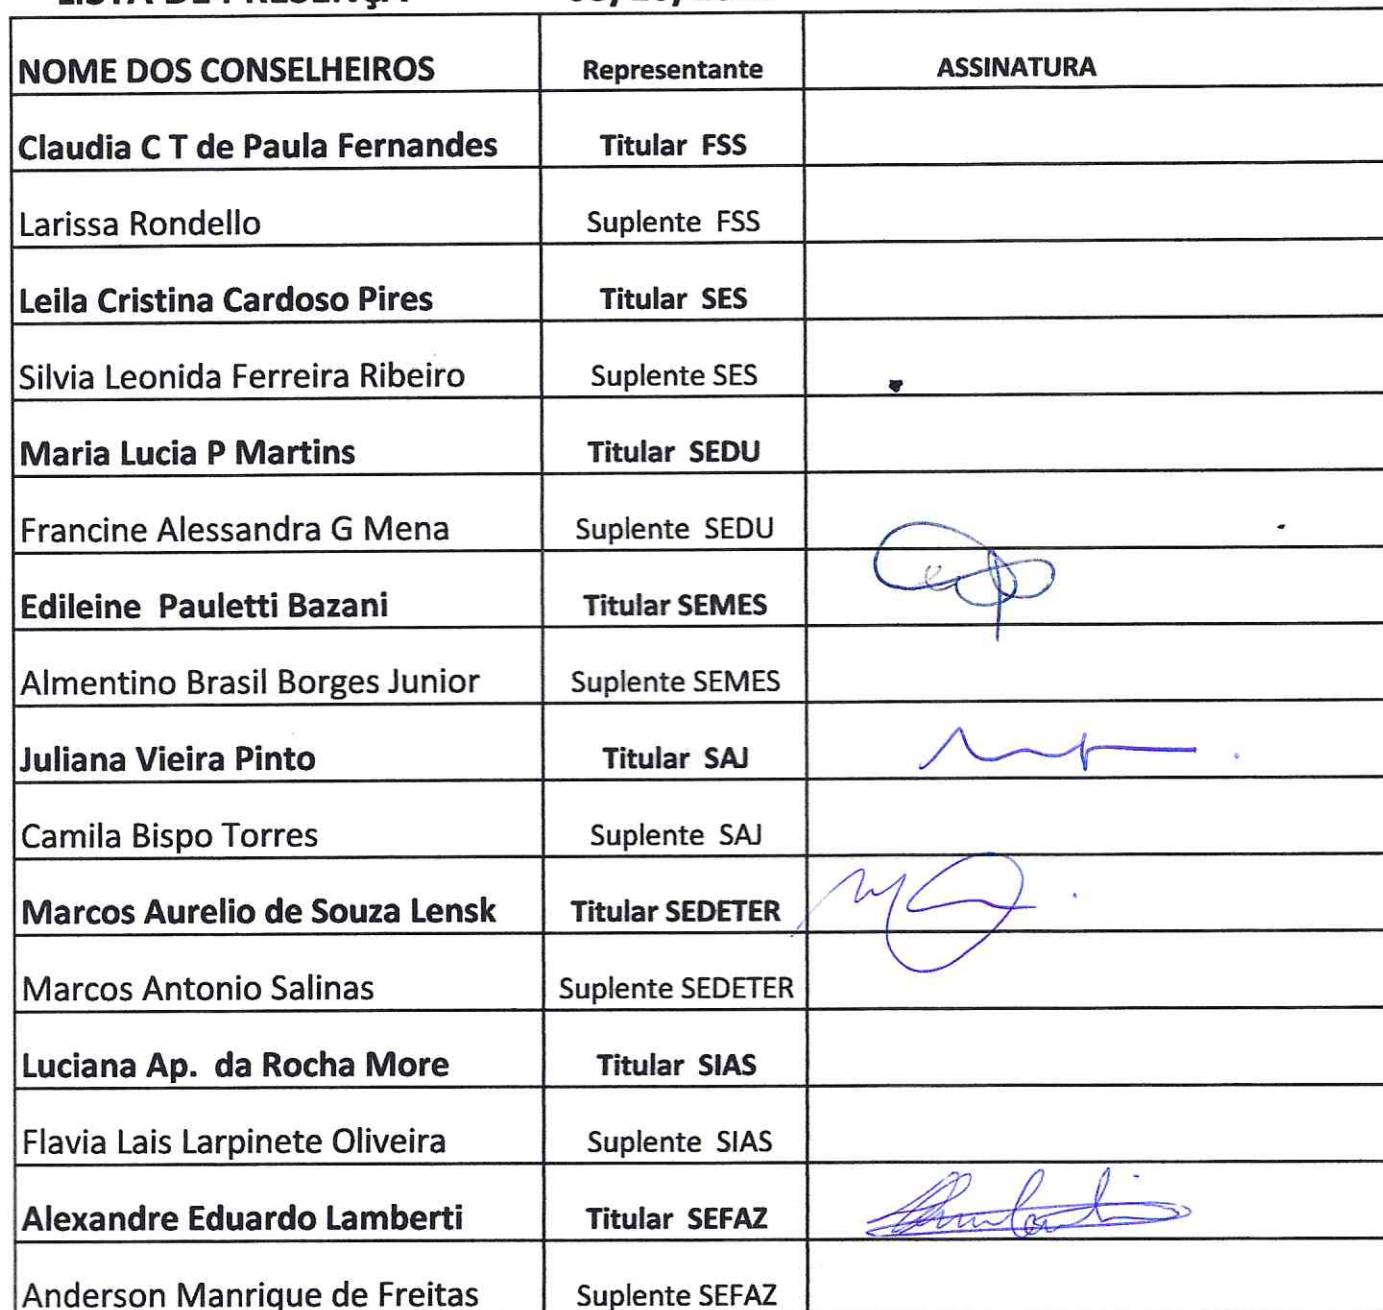 LISTA DE PRESENÇA
NOME DOS CONSELHEIROS Representante ASSINATURA
Claudia C T de Paula Fernandes Titular FSS
Larissa Rondello Suplente FSS
Leila Cristina Cardoso Pires Titular SES
Silvia Leonida Ferreira Ribeiro Suplente SES
Maria Lucia P Martins Titular SEDU
Francine Alessandra G Mena Suplente SEDU
Edileine Pauletti Bazani Titular SEMES
Almentino Brasil Borges Junior Suplente SEMES
Juliana Vieira Pinto Titular SAJ
Camila Bispo Torres Suplente SAJ
Marcos Aurelio de Souza Lensk Titular SEDETER
Marcos Antonio Salinas Suplente SEDETER
Luciana Ap. da Rocha More Titular SIAS
Flavia Lais Larpinete Oliveira Suplente SIAS
Alexandre Eduardo Lamberti Titular SEFAZ
Anderson Manrique de Freitas Suplente SEFAZ